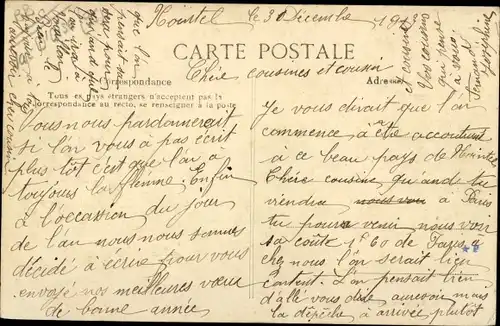 Nointel le 30 Décembre 1913
CARTE POSTALE
Chère cousines et cousin
Correspondance
Adresse
Tous les pays étrangers n'acceptent pas la
Correspondance au recto, se renseigner à la poste
Vous nous pardonnerait
si l'on vous à pas écrit
plus tôt c'est que l'on a
toujours la flemme. Enfin
à l'occassion du jour
de l'an nous nous sommes
décidé à écrire pour vous
envoyé nos meilleures vœux
de bonne année
Je vous dirait que l'on
commence à être accoutumé
à ce beau pays de Nointel
Chère cousine quand tu
viendra nous voir à Paris
tu pourra venir nous voir
sa coute 1f60 de Paris à
chez nous l'on serait bien
content. L'on pensait bien
d'allé vous dire aurevoir mais
la dépèche à arrivée plutôt
que l'on
pensait
au revoir cher cousin
et cousine
Vos cousins
qui pense
à vous.
Joséphine